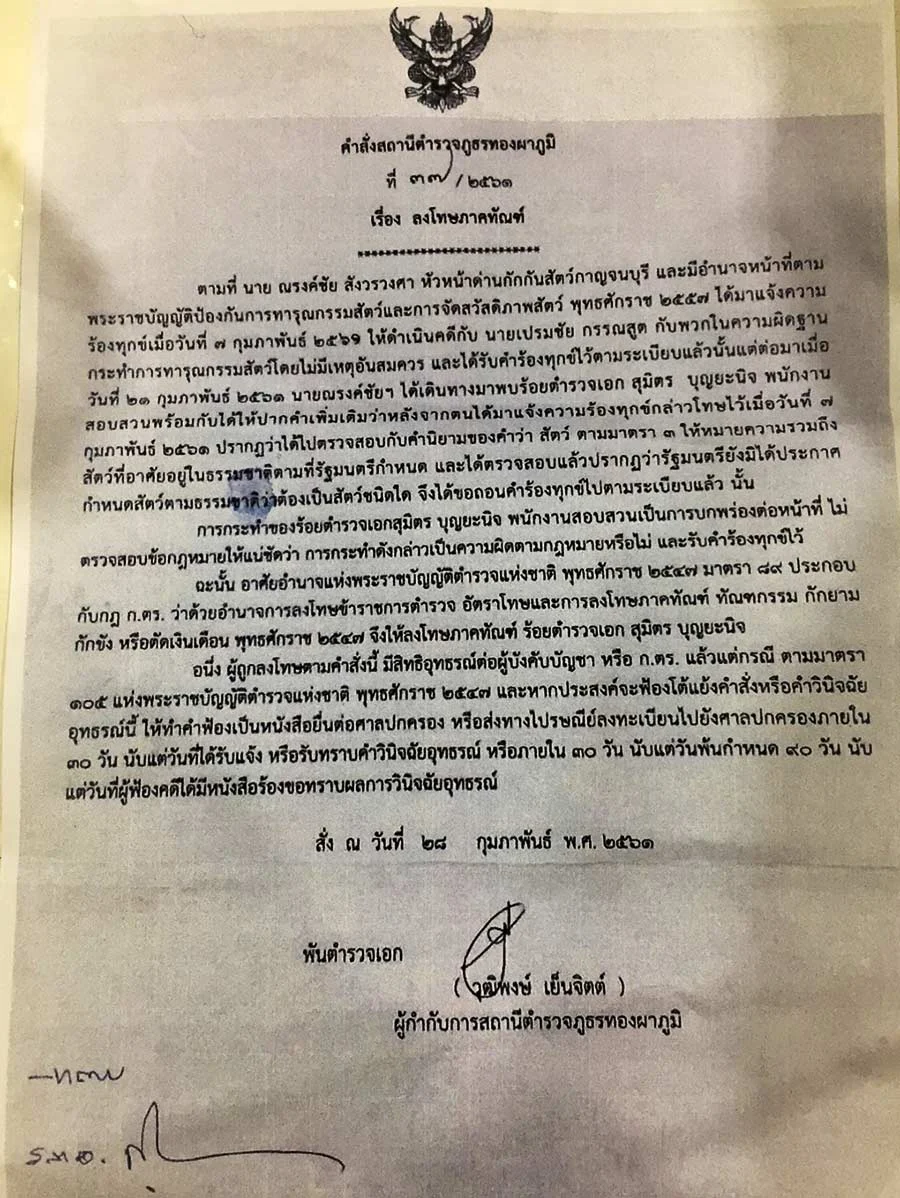 คำสั่งสถานีตำรวจภูธรทองผาภูมิ
ที่ ๓๗ / ๒๕๖๑
เรื่อง ลงโทษภาคทัณฑ์
***************************
ตามที่ นาย ณรงค์ชัย สังวรวงศา หัวหน้าด่านกักกันสัตว์กาญจนบุรี และมีอำนาจหน้าที่ตาม
พระราชบัญญัติป้องกันการทารุณกรรมสัตว์และการจัดสวัสดิภาพสัตว์ พุทธศักราช ๒๕๕๗ ได้มาแจ้งความ
ร้องทุกข์เมื่อวันที่ ๗ กุมภาพันธ์ ๒๕๖๑ ให้ดำเนินคดีกับ นายเปรมชัย กรรณสูต กับพวกในความผิดฐาน
กระทำการทารุณกรรมสัตว์โดยไม่มีเหตุอันสมควร และได้รับคำร้องทุกข์ไว้ตามระเบียบแล้วนั้นแต่ต่อมาเมื่อ
วันที่ ๒๑ กุมภาพันธ์ ๒๕๖๑ นายณรงค์ชัยฯ ได้เดินทางมาพบร้อยตำรวจเอก สุมิตร บุญยะนิจ พนักงาน
สอบสวนพร้อมกับได้ให้ปากคำเพิ่มเติมว่าหลังจากตนได้มาแจ้งความร้องทุกข์กล่าวโทษไว้เมื่อวันที่ ๗
กุมภาพันธ์ ๒๕๖๑ ปรากฏว่าได้ไปตรวจสอบกับคำนิยามของคำว่า สัตว์ ตามมาตรา ๓ ให้หมายความรวมถึง
สัตว์ที่อาศัยอยู่ในธรรมชาติตามที่รัฐมนตรีกำหนด และได้ตรวจสอบแล้วปรากฏว่ารัฐมนตรียังมิได้ประกาศ
กำหนดสัตว์ตามธรรมชาติว่าต้องเป็นสัตว์ชนิดใด จึงได้ขอถอนคำร้องทุกข์ไปตามระเบียบแล้ว นั้น
การกระทำของร้อยตำรวจเอกสุมิตร บุญยะนิจ พนักงานสอบสวนเป็นการบกพร่องต่อหน้าที่ ไม่
ตรวจสอบข้อกฎหมายให้แน่ชัดว่า การกระทำดังกล่าวเป็นความผิดตามกฎหมายหรือไม่ และรับคำร้องทุกข์ไว้
ฉะนั้น อาศัยอำนาจแห่งพระราชบัญญัติตำรวจแห่งชาติ พุทธศักราช ๒๕๔๗ มาตรา ๘๙ ประกอบ
กับกฎ ก.ตร. ว่าด้วยอำนาจการลงโทษข้าราชการตำรวจ อัตราโทษและการลงโทษภาคทัณฑ์ ทัณฑกรรม กักยาม
กักขัง หรือตัดเงินเดือน พุทธศักราช ๒๕๔๗ จึงให้ลงโทษภาคทัณฑ์ ร้อยตำรวจเอก สุมิตร บุญยะนิจ
อนึ่ง ผู้ถูกลงโทษตามคำสั่งนี้ มีสิทธิอุทธรณ์ต่อผู้บังคับบัญชา หรือ ก.ตร. แล้วแต่กรณี ตามมาตรา
๑๐๕ แห่งพระราชบัญญัติตำรวจแห่งชาติ พุทธศักราช ๒๕๔๗ และหากประสงค์จะฟ้องโต้แย้งคำสั่งหรือคำวินิจฉัย
อุทธรณ์นี้ ให้ทำคำฟ้องเป็นหนังสือยื่นต่อศาลปกครอง หรือส่งทางไปรษณีย์ลงทะเบียนไปยังศาลปกครองภายใน
๓๐ วัน นับแต่วันที่ได้รับแจ้ง หรือรับทราบคำวินิจฉัยอุทธรณ์ หรือภายใน ๓๐ วัน นับแต่วันพ้นกำหนด ๙๐ วัน นับ
แต่วันที่ผู้ฟ้องคดีได้มีหนังสือร้องขอทราบผลการวินิจฉัยอุทธรณ์
สั่ง ณ วันที่ ๒๘ กุมภาพันธ์ พ.ศ. ๒๕๖๑
พันตำรวจเอก
( วุฒิพงษ์ เย็นจิตต์ )
ผู้กำกับการสถานีตำรวจภูธรทองผาภูมิ
ร.ต.อ.